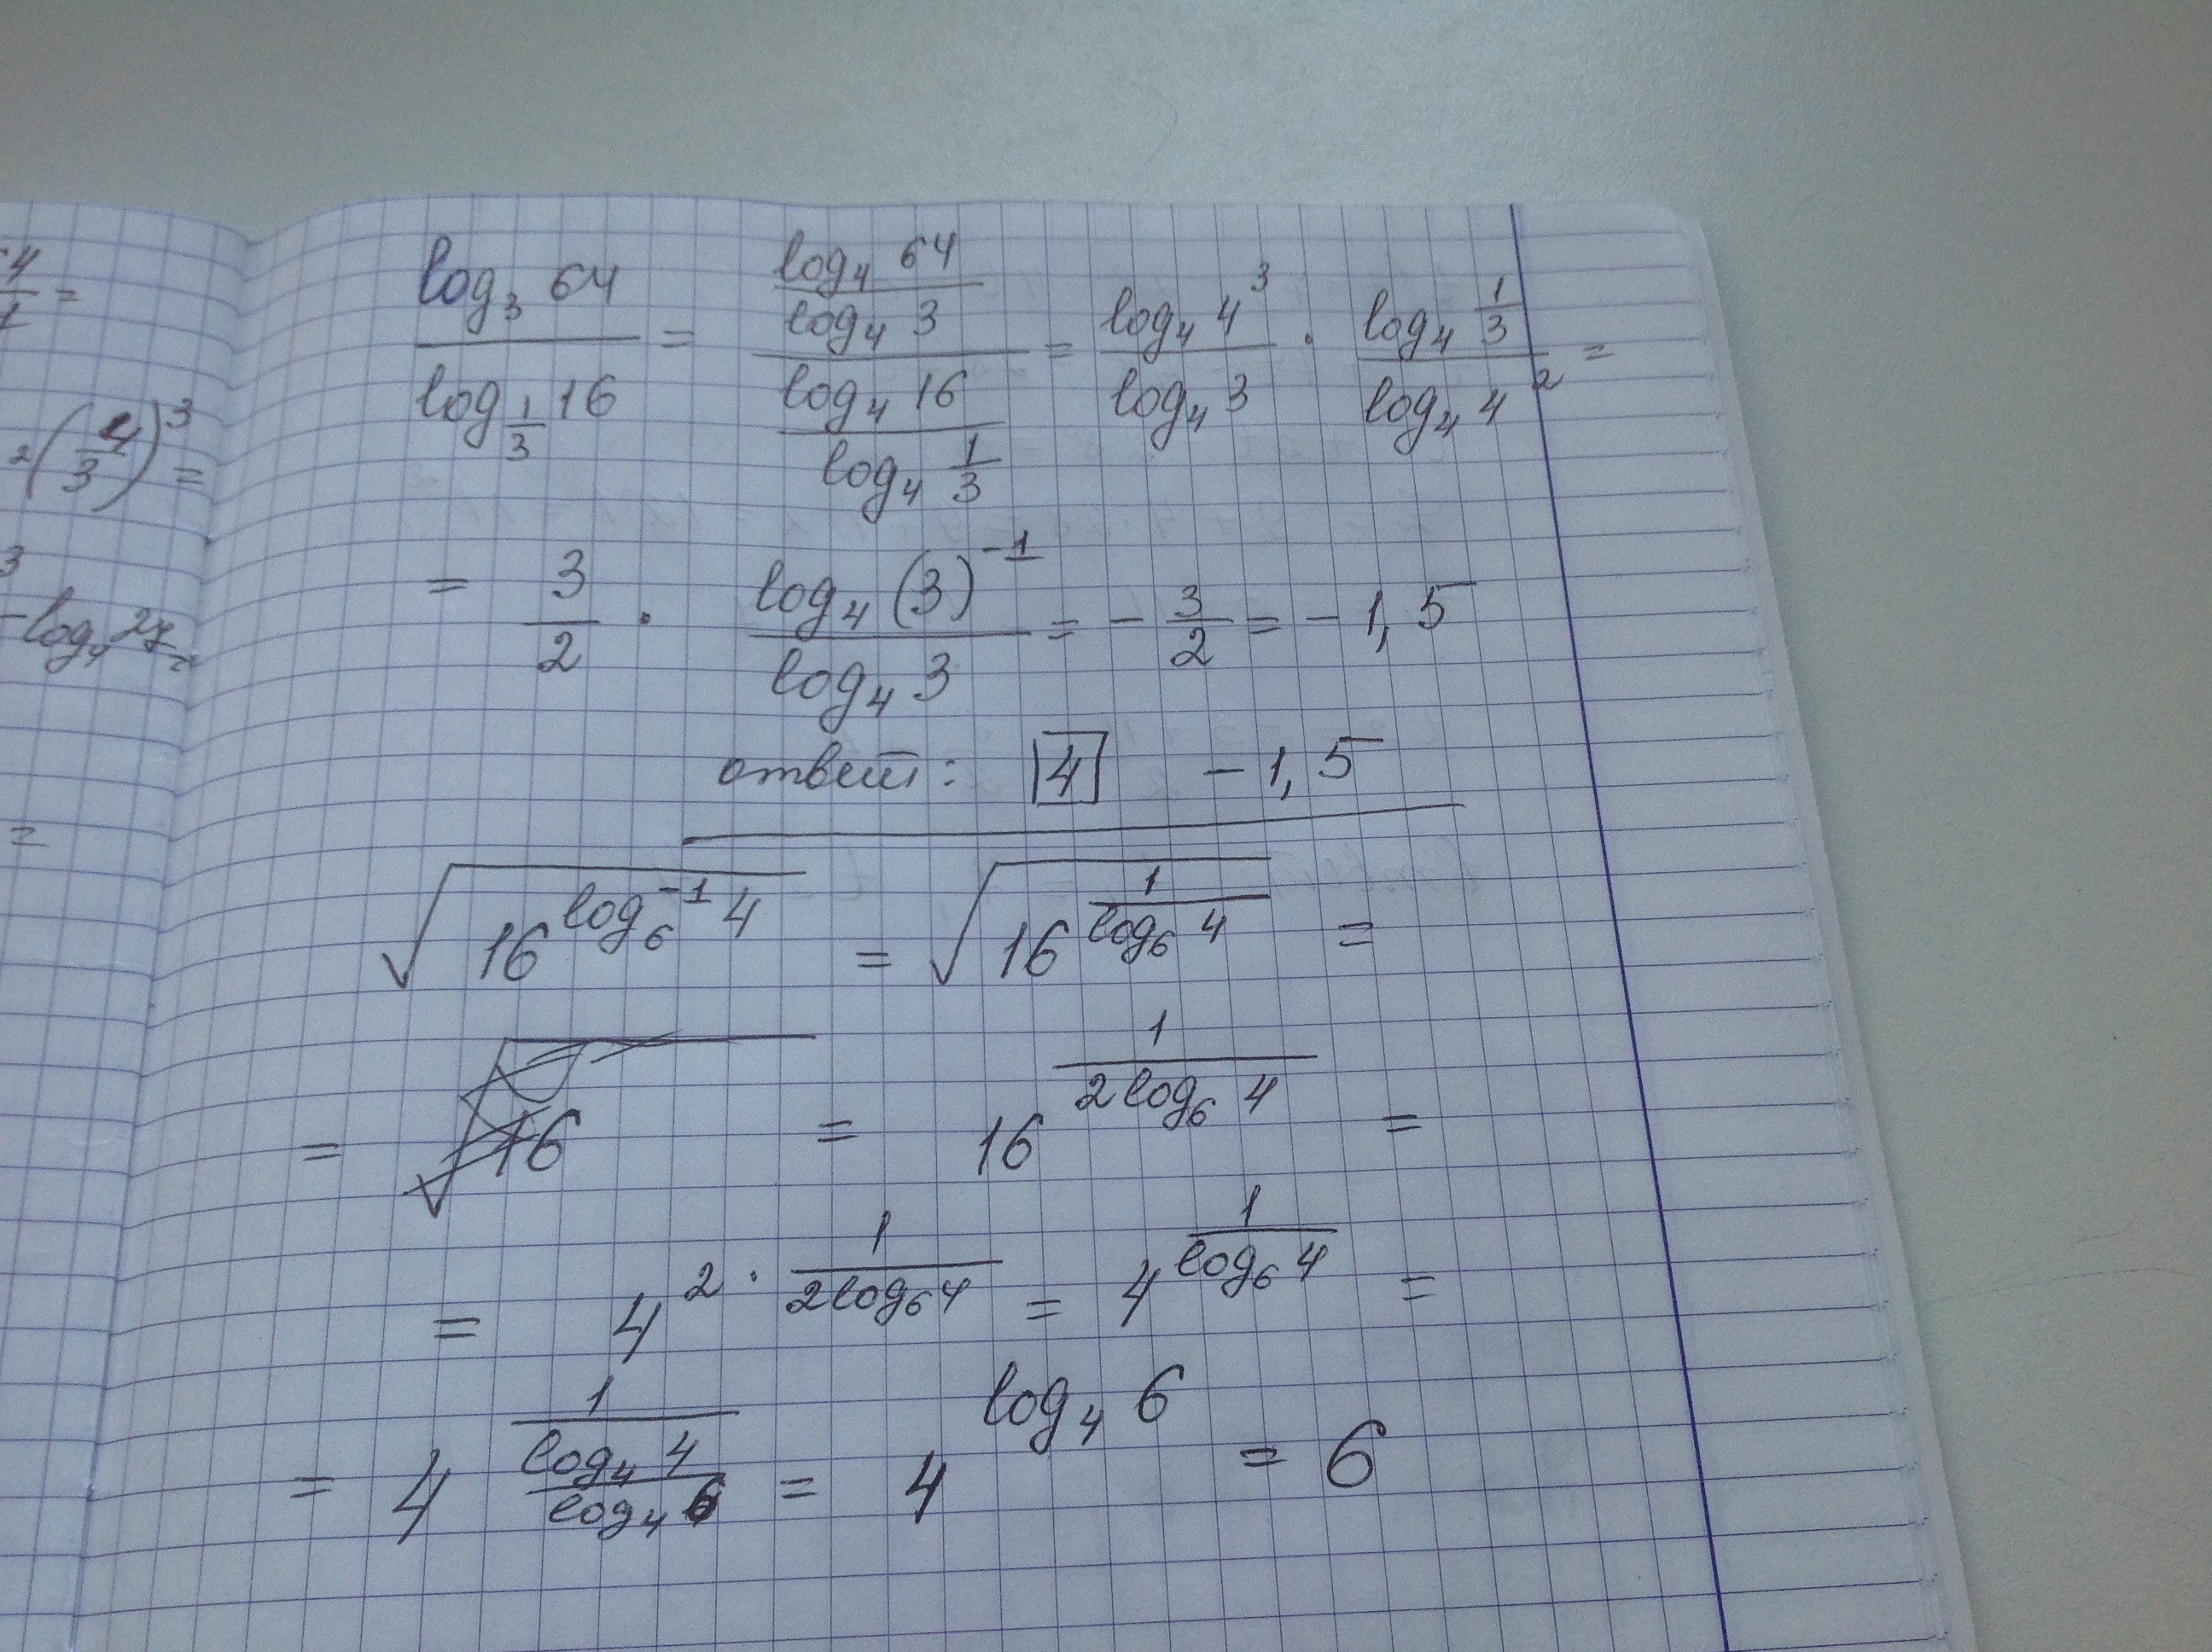 log₃ 64 / log_(1/3) 16 = (log₄ 64 / log₄ 3) / (log₄ 16 / log₄ 1/3) = log₄ 4³ / log₄ 3 · log₄ 1/3 / log₄ 4² =
= 3/2 · log₄ (3)⁻¹ / log₄ 3 = - 3/2 = - 1,5
ответ: 4 - 1,5
√(16^(log₆⁻¹ 4)) = √(16^(1/(log₆ 4))) =
= √16 = 16^(1/(2 log₆ 4)) =
= 4^(2 · 1/(2 log₆ 4)) = 4^(1/(log₆ 4)) =
= 4^(1/(log₄ 4 / log₄ 6)) = 4^(log₄ 6) = 6